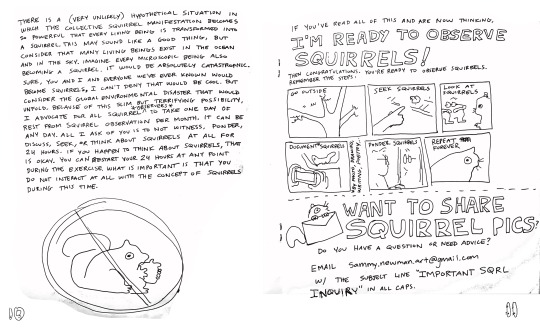 THERE IS A (VERY UNLIKELY) HYPOTHETICAL SITUATION IN
WHICH THE COLLECTIVE SQUIRREL MANIFESTATION BECOMES
SO POWERFUL THAT EVERY LIVING BEING IS TRANSFORMED INTO
A SQUIRREL. THIS MAY SOUND LIKE A GOOD THING, BUT
CONSIDER THAT MANY LIVING BEINGS EXIST IN THE OCEAN
AND IN THE SKY. IMAGINE EVERY MICROSCOPIC BEING ALSO
BECOMING A SQUIRREL. IT WOULD BE ABSOLUTELY CATASTROPHIC.
SURE, YOU AND I AND EVERYONE WE'VE EVER KNOWN WOULD
BECOME SQUIRRELS, I CAN'T DENY THAT WOULD BE COOL. BUT
CONSIDER THE GLOBAL ENVIRONMENTAL DISASTER THAT WOULD
UNFOLD. BECAUSE OF THIS SLIM BUT TERRIFYING POSSIBILITY,
I ADVOCATE FOR ALL SQUIRREL OBSERVERS TO TAKE ONE DAY OF
REST FROM SQUIRREL OBSERVATION PER MONTH. IT CAN BE
ANY DAY. ALL I ASK OF YOU IS TO NOT WITNESS, PONDER,
DISCUSS, SEEK, OR THINK ABOUT SQUIRRELS AT ALL FOR
24 HOURS. IF YOU HAPPEN TO THINK ABOUT SQUIRRELS, THAT
IS OKAY. YOU CAN RESTART YOUR 24 HOURS AT ANY POINT
DURING THE EXERCISE. WHAT IS IMPORTANT IS THAT YOU
DO NOT INTERACT AT ALL WITH THE CONCEPT OF SQUIRRELS
DURING THIS TIME.
10
IF YOU'VE READ ALL OF THIS AND ARE NOW THINKING,
I'M READY TO OBSERVE
SQUIRRELS!
THEN CONGRATULATIONS. YOU'RE READY TO OBSERVE SQUIRRELS.
REMEMBER THE STEPS:
GO OUTSIDE
SEEK SQUIRRELS
LOOK AT
SQUIRRELS
DOCUMENT SQUIRRELS
PONDER SQUIRRELS
REPEAT
FOREVER
WANT TO SHARE
SQUIRREL PICS?
DO YOU HAVE A QUESTION OR NEED ADVICE?
EMAIL sammy.newman.art@gmail.com
W/ THE SUBJECT LINE "IMPORTANT SQRL
INQUIRY" IN ALL CAPS.
11